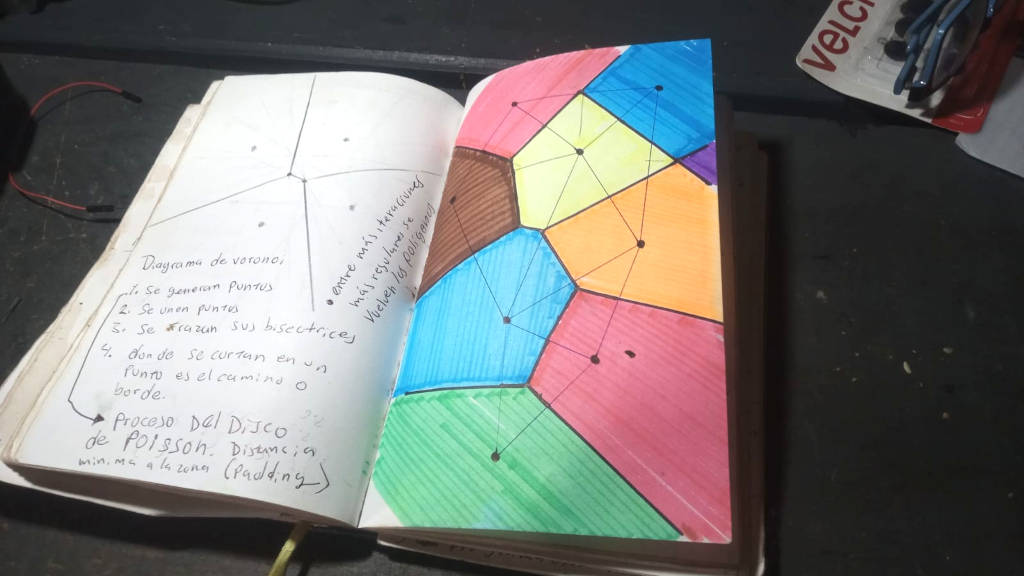 Diagrama de voronoi
1. Se generan puntos
2. Se unen puntos
3. Se trazan sus bisectrices
4. donde se cortan en un
punto es el camino o
borde.
Proceso DEL DISCO
de POISSON. Distancia
minima a la zona (Padding)
• entre más iteraciones
más regulares se
vuelven los poligonos
VELCR